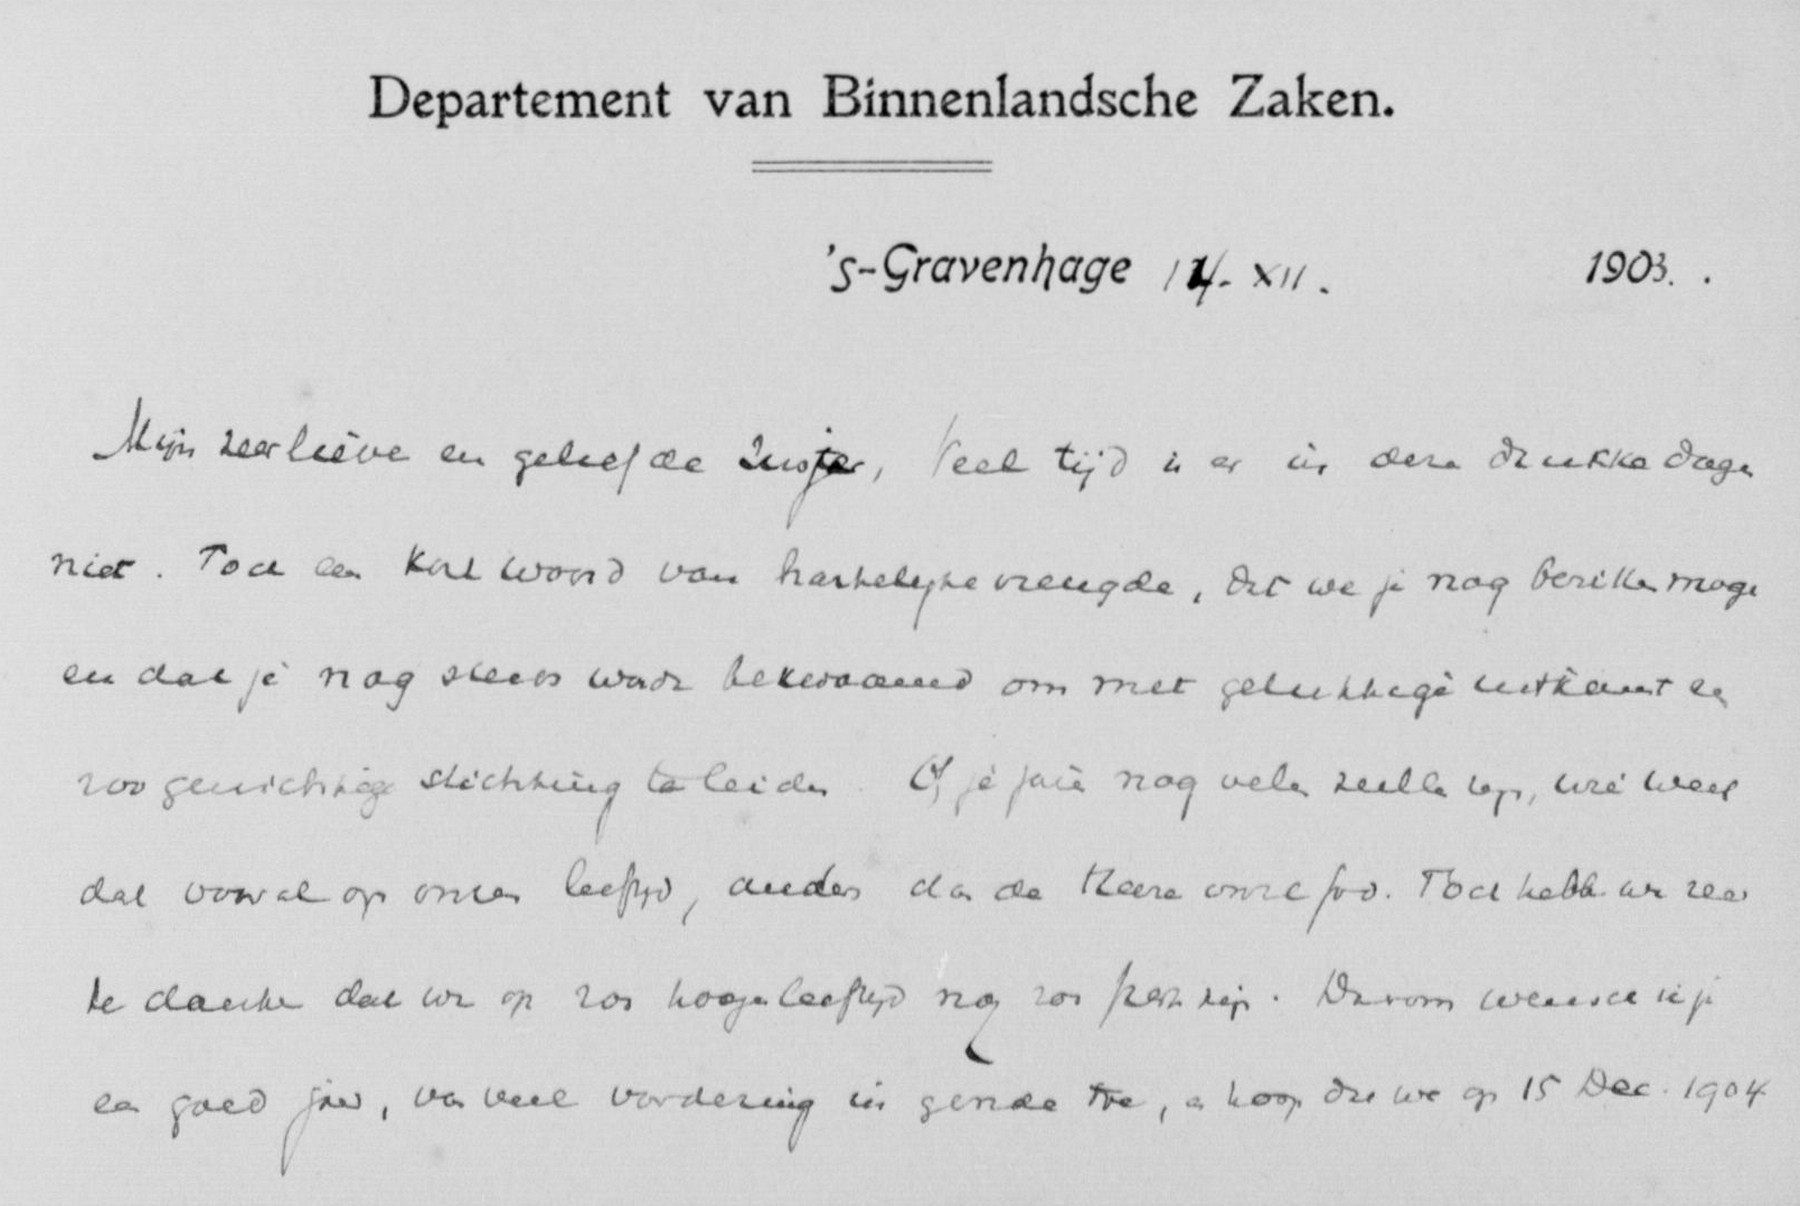 Departement van Binnenlandsche Zaken.
's-Gravenhage 14-XII. 1903. .
Mijn zeer lieve en geliefde Zuster, Veel tijd is er in deze drukke dagen
niet. Toch een kort woord van hartelijke vreugde, dat we je nog bezitten mogen
en dat je nog steeds wordt bekwaamd om met gelukkige uitkomst een
zoo gewichtige stichting te leiden. Of je jaren nog velen zullen zijn, wie weet
dat vooral op onzen leeftijd, anders dan de Heere onze God. Toch hebben we zeer
te danken dat we op zoo hoogen leeftijd nog zoo frisch zijn. Daarom wensch ik je
een goed jaar, van veel vordering in genade toe, en hoop dat we op 15 Dec. 1904